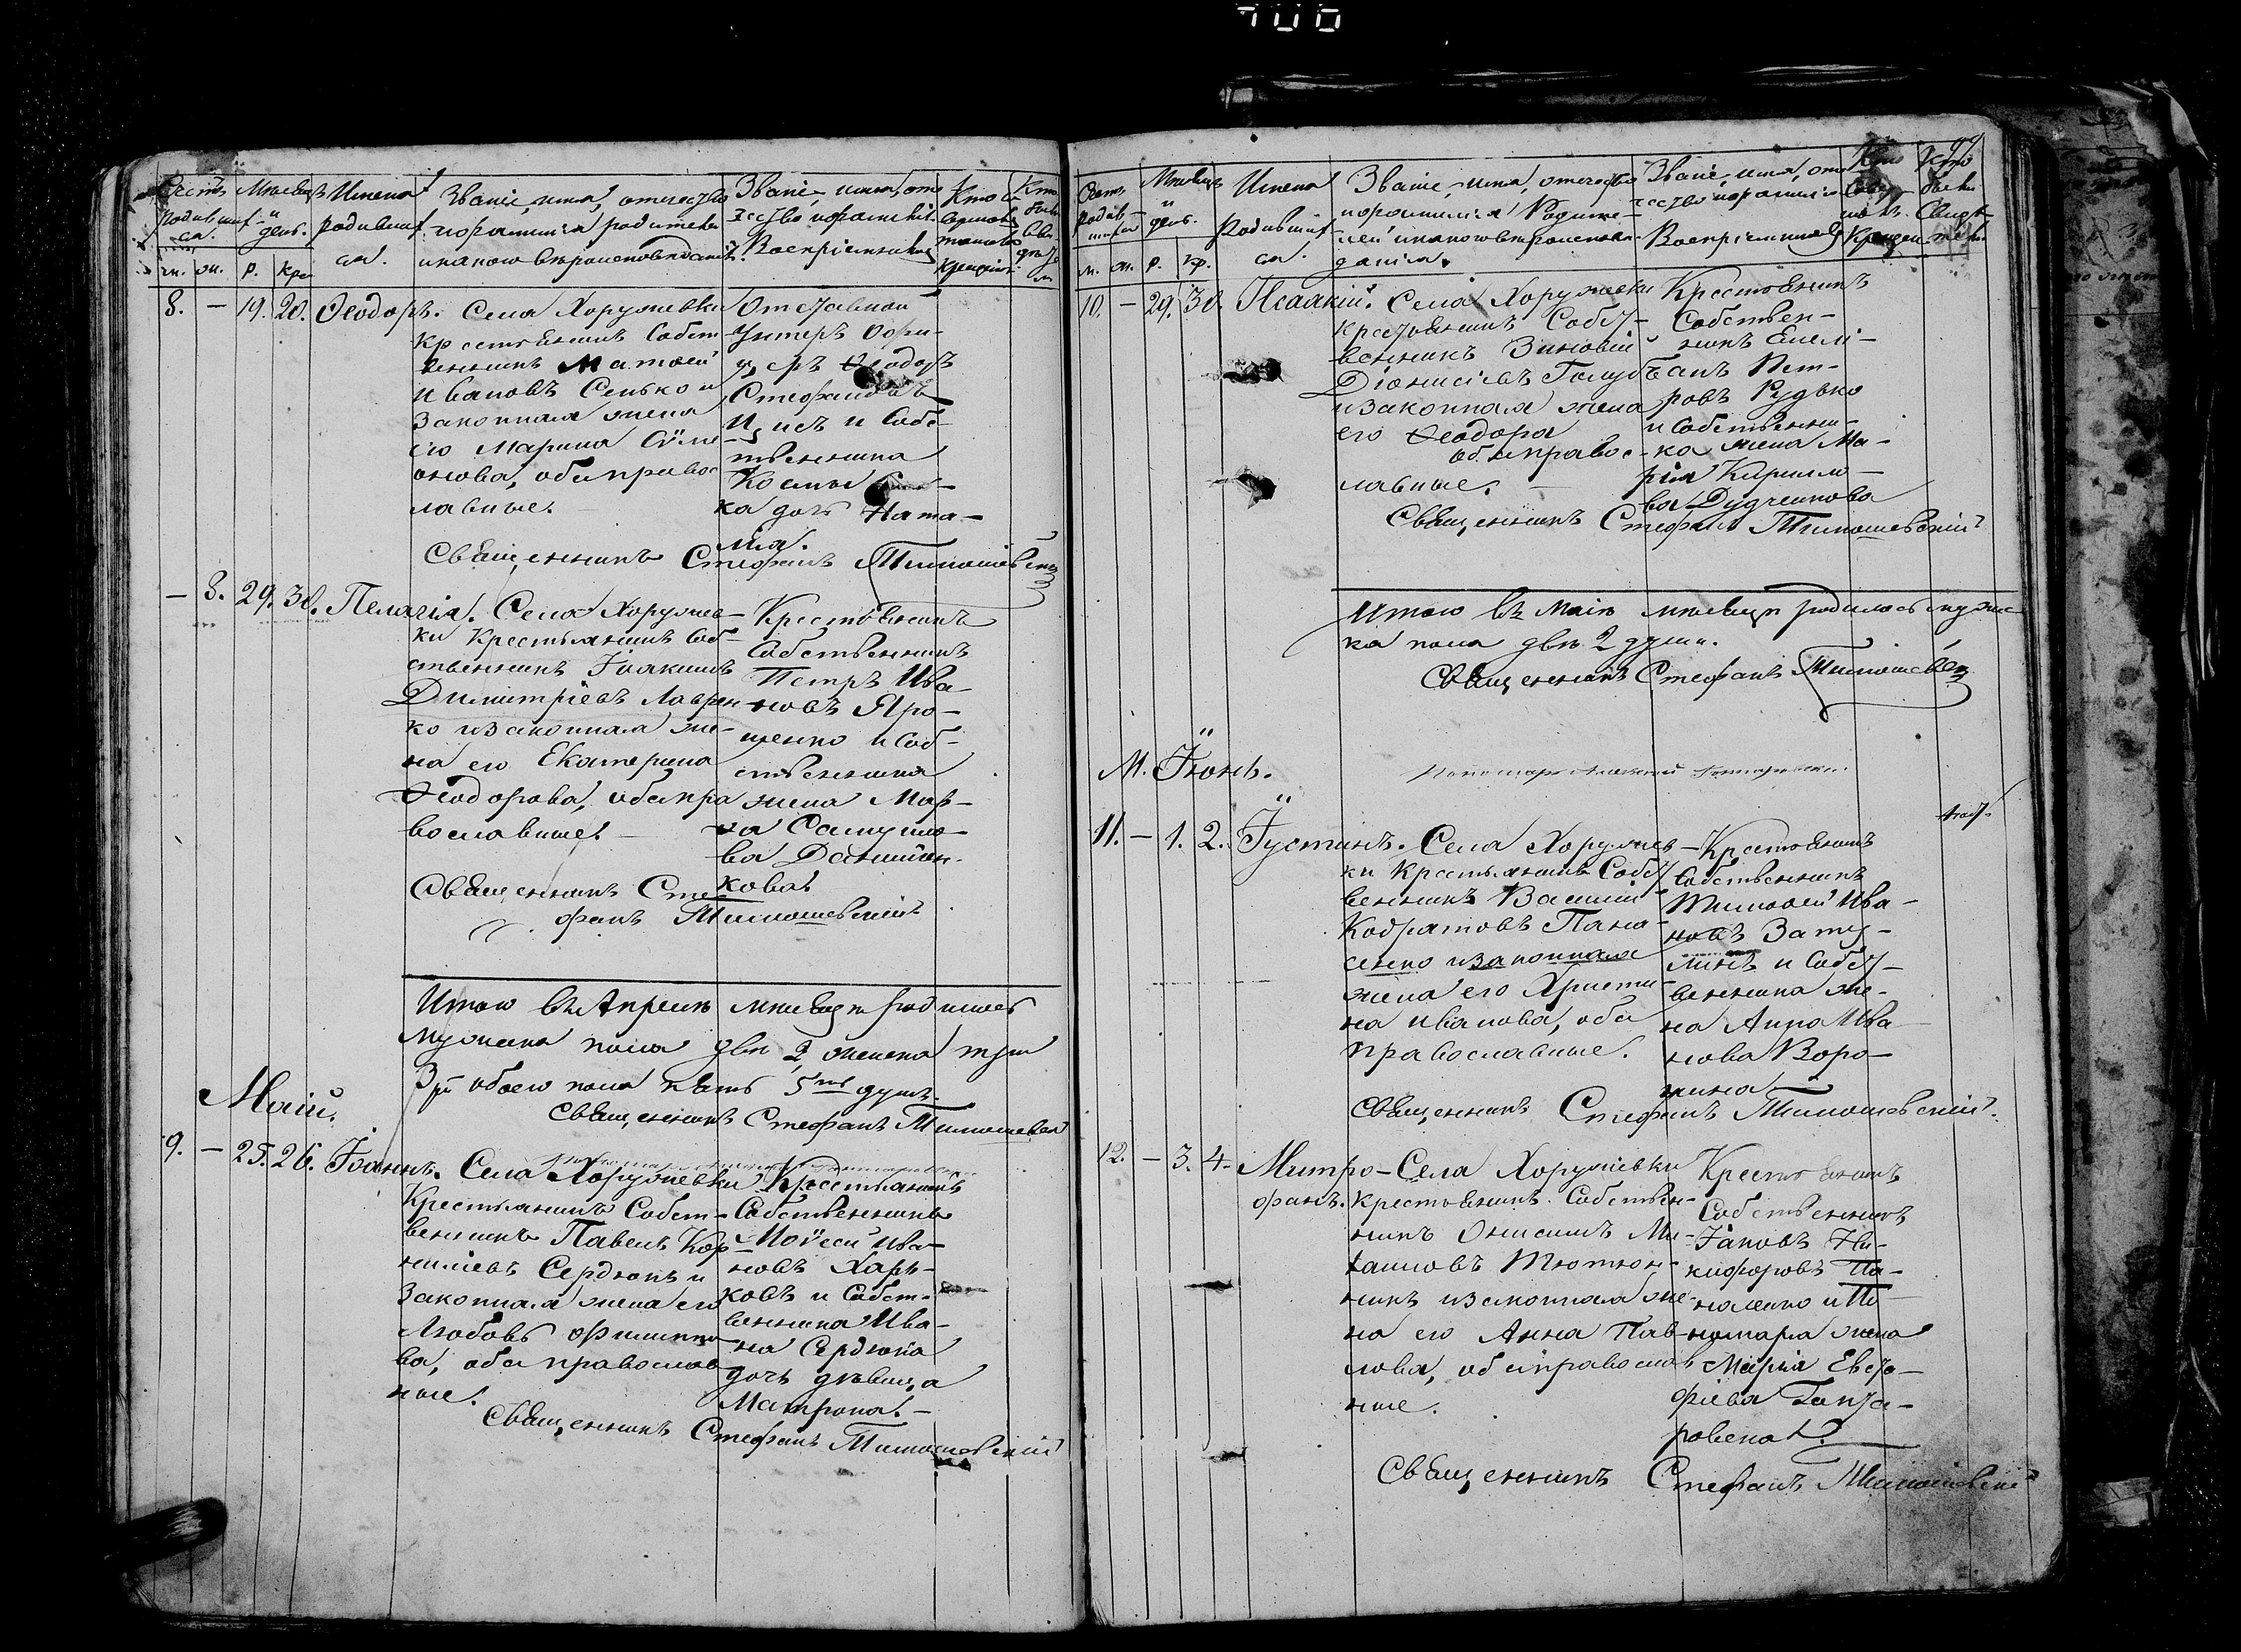 Счетъ родившихся. Мѣсяцъ и день. Имена родившихся.
Званіе, имя, отечество и фамилія родителей и какого вѣроисповѣданія.
Званіе, имя, отечество и фамилія Воспріемниковъ
м. ж. р. кре
8. — 19. 20. Ѳеодоръ. Села Хоружевки
крестьянинъ Собст-
венникъ Матѳей
Ивановъ Сенько и
Законная жена
его Марина Сѵме-
онова, оба правос
лавные. —
Отставной
Унтеръ Офи-
церъ Ѳеодоръ
Стефановъ
и Собс-
твенника
Космы
ка дочь Ната-
лія.
Священникъ Стефанъ Тимошевскій
— 8. 29. 30. Пелагія. Села Хоружев-
ки Крестьянинъ Соб-
ственникъ Іоакимъ
Димитріевъ Лаврен
ко и законная же-
на его Екатерина
Ѳеодорова, оба пра
вославные. —
Крестьянинъ
Собственникъ
Петръ Ива-
новъ Яро-
шенко и Соб-
ственника
жена Мар-
ѳа Самуило-
ва
кова
Священникъ Сте-
фанъ Тимошевскій
Итого въ Апрелѣ мѣсяцѣ родилось
мужска пола двѣ 2, женска три
3 обоего пола пять 5 душъ.
Священникъ Стефанъ Тимошевскій
Маій.
9. — 25. 26. Іоаннъ. Села Хоружевки
Крестьянинъ Собст-
венникъ Павелъ Кор-
ниліевъ Сердюкъ и
Законная жена его
Любовь Филиппо
ва, оба православ
ные.
Крестьянинъ
Собственникъ
Моѵсей Ива-
новъ Харь-
ковъ и Собст-
венника Ива-
на Сердюка
дочь дѣвица
Матрона. —
Священникъ Стефанъ Тимошевскій
Счетъ родившихся Мѣсяцъ и день. Имена Родившихся.
Званіе, имя, отечество и фамилія Родителей и какого вѣроисповѣданія.
Званіе, имя, отечество и фамилія Воспріемниковъ
м. ж. р. кр.
10. — 29. 30. Исаакій. Села Хоружевки
крестьянинъ Собст-
венникъ Зиновій
Діонисіевъ Голубъ
и законная жена
его Ѳеодора
оба правос-
лавные. —
Крестьянинъ
Собствен-
никъ Емелі-
анъ Пет-
ровъ Рудько
и Собственни-
ка жена Ма-
рія Кирилло-
ва Дудченкова
Священникъ Стефанъ Тимошевскій
Итого въ Маіѣ мѣсяцѣ родилось мужс-
ка пола двѣ 2 души.
Священникъ Стефанъ Тимошевскій
М. Іюнь.
11. — 1. 2. Іустинъ. Села Хоружев-
ки Крестьянинъ Собст
венникъ Василій
Кодратовъ Пана-
сенко и законная
жена его Христи-
на Иванова, оба
православные.
Крестьянинъ
Собственникъ
Тимоѳей Ива-
новъ Зату-
линъ и Собст-
венника же-
на Анна Ива
нова Воро-
нина
Священникъ Стефанъ Тимошевскій.
12. — 3. 4. Митро-
фанъ. Села Хоружевки
Крестьянинъ Собствен-
никъ Онисимъ Ми-
хаиловъ Тютюн-
никъ и законная же-
на его Анна Пав-
лова, оба православ
ные.
Крестьянинъ
Собственникъ
Іаковъ Ни-
кифоровъ Па-
наленко и По-
номаря жена
Марія Евста-
фіева Гонча-
ровскаѧ.
Священникъ Стефанъ Тимошевскій